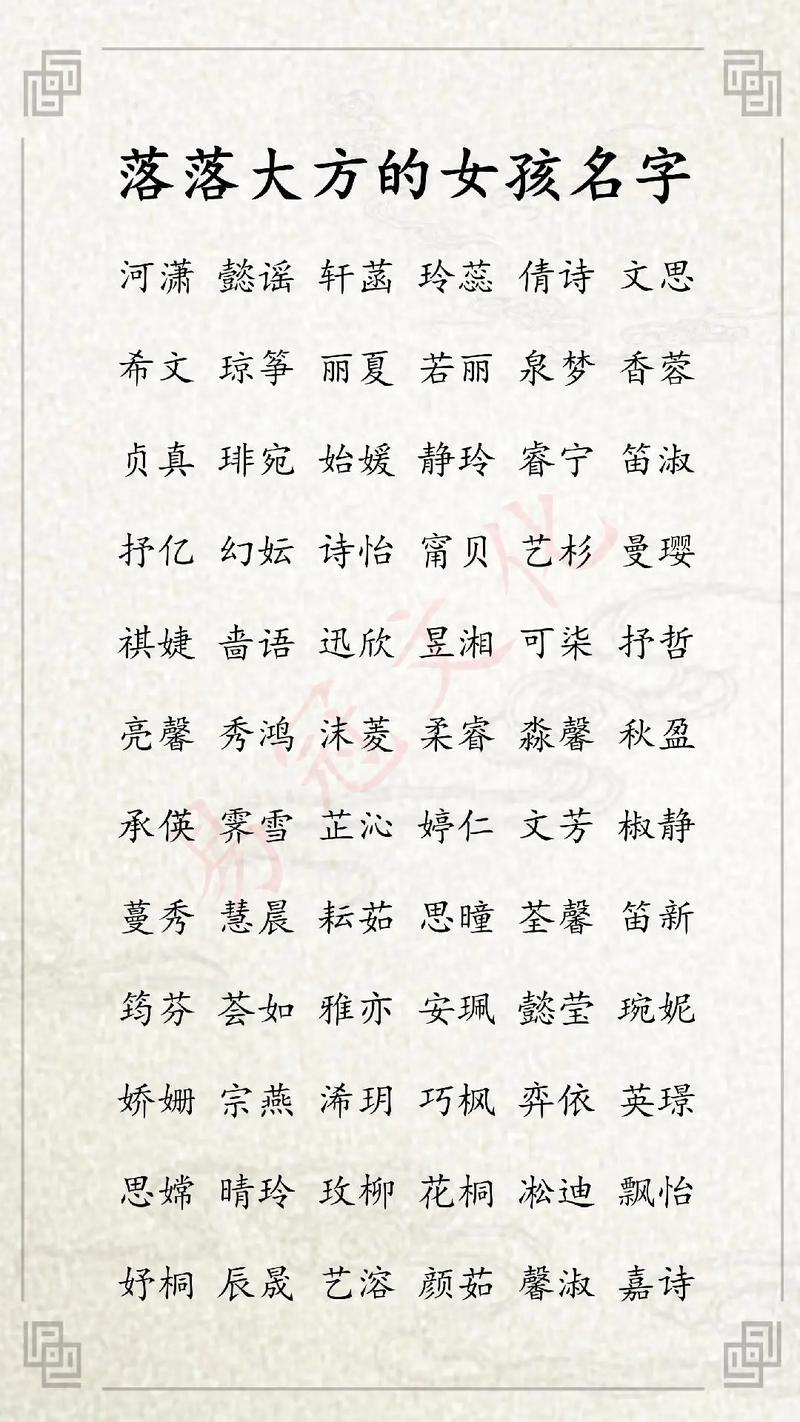 落落大方的女孩名字
河潇 懿谣 轩菡 玲蕊 倩诗 文思
希文 琼筝 丽夏 若丽 泉梦 香蓉
贞真 琲宛 始媛 静玲 睿宁 笛淑
抒亿 幻妘 诗怡 甯贝 艺杉 曼璎
祺婕 啬语 迅欣 昱湘 可柒 抒哲
亮馨 秀鸿 沫菱 柔睿 淼馨 秋盈
承偀 霁雪 芷沁 婷仁 文芳 椒静
蔓秀 慧晨 耘茹 思曈 荃馨 笛新
筠芬 荟如 雅亦 安珮 懿莹 琬妮
娇姗 宗燕 浠玥 巧枫 弈依 英璟
思嫦 晴玲 玫柳 花桐 凇迪 飘怡
妤桐 辰晟 艺溶 颜茹 馨淑 嘉诗
易冠文化